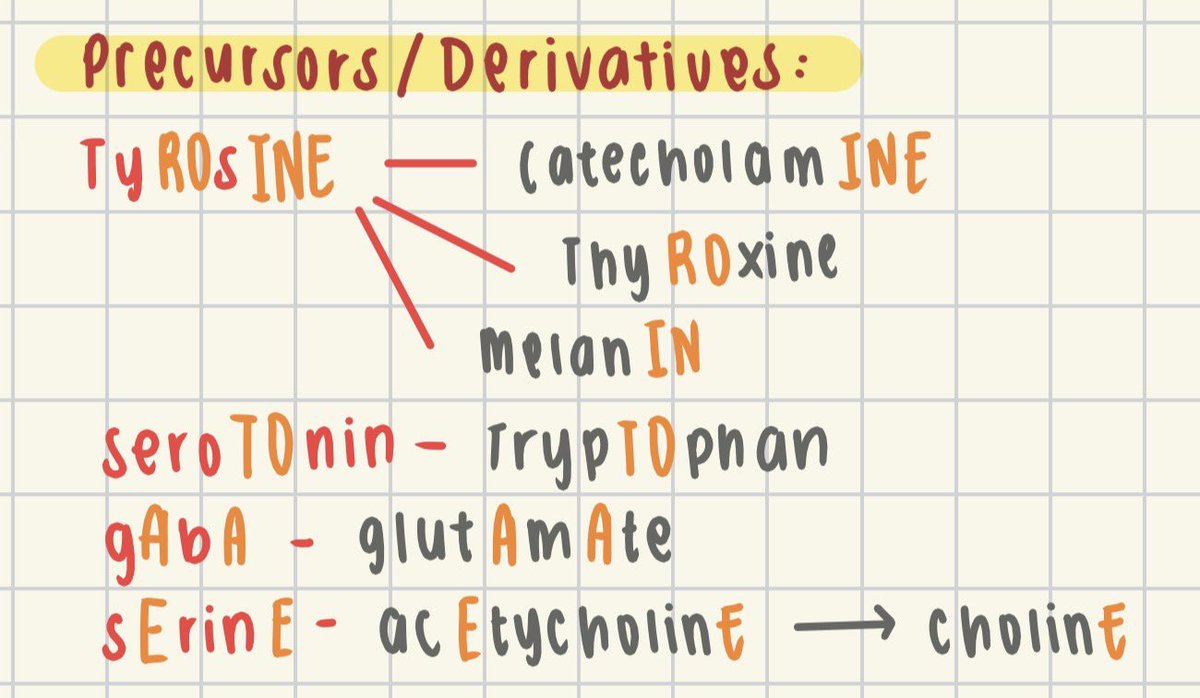 Precursors/Derivatives:
TyROsINE — CatecholamINE
ThyROxine
melanIN
seroTOnin - TrypTOphan
gAbA - glutAmAte
sErinE - acEtycholinE → cholinE